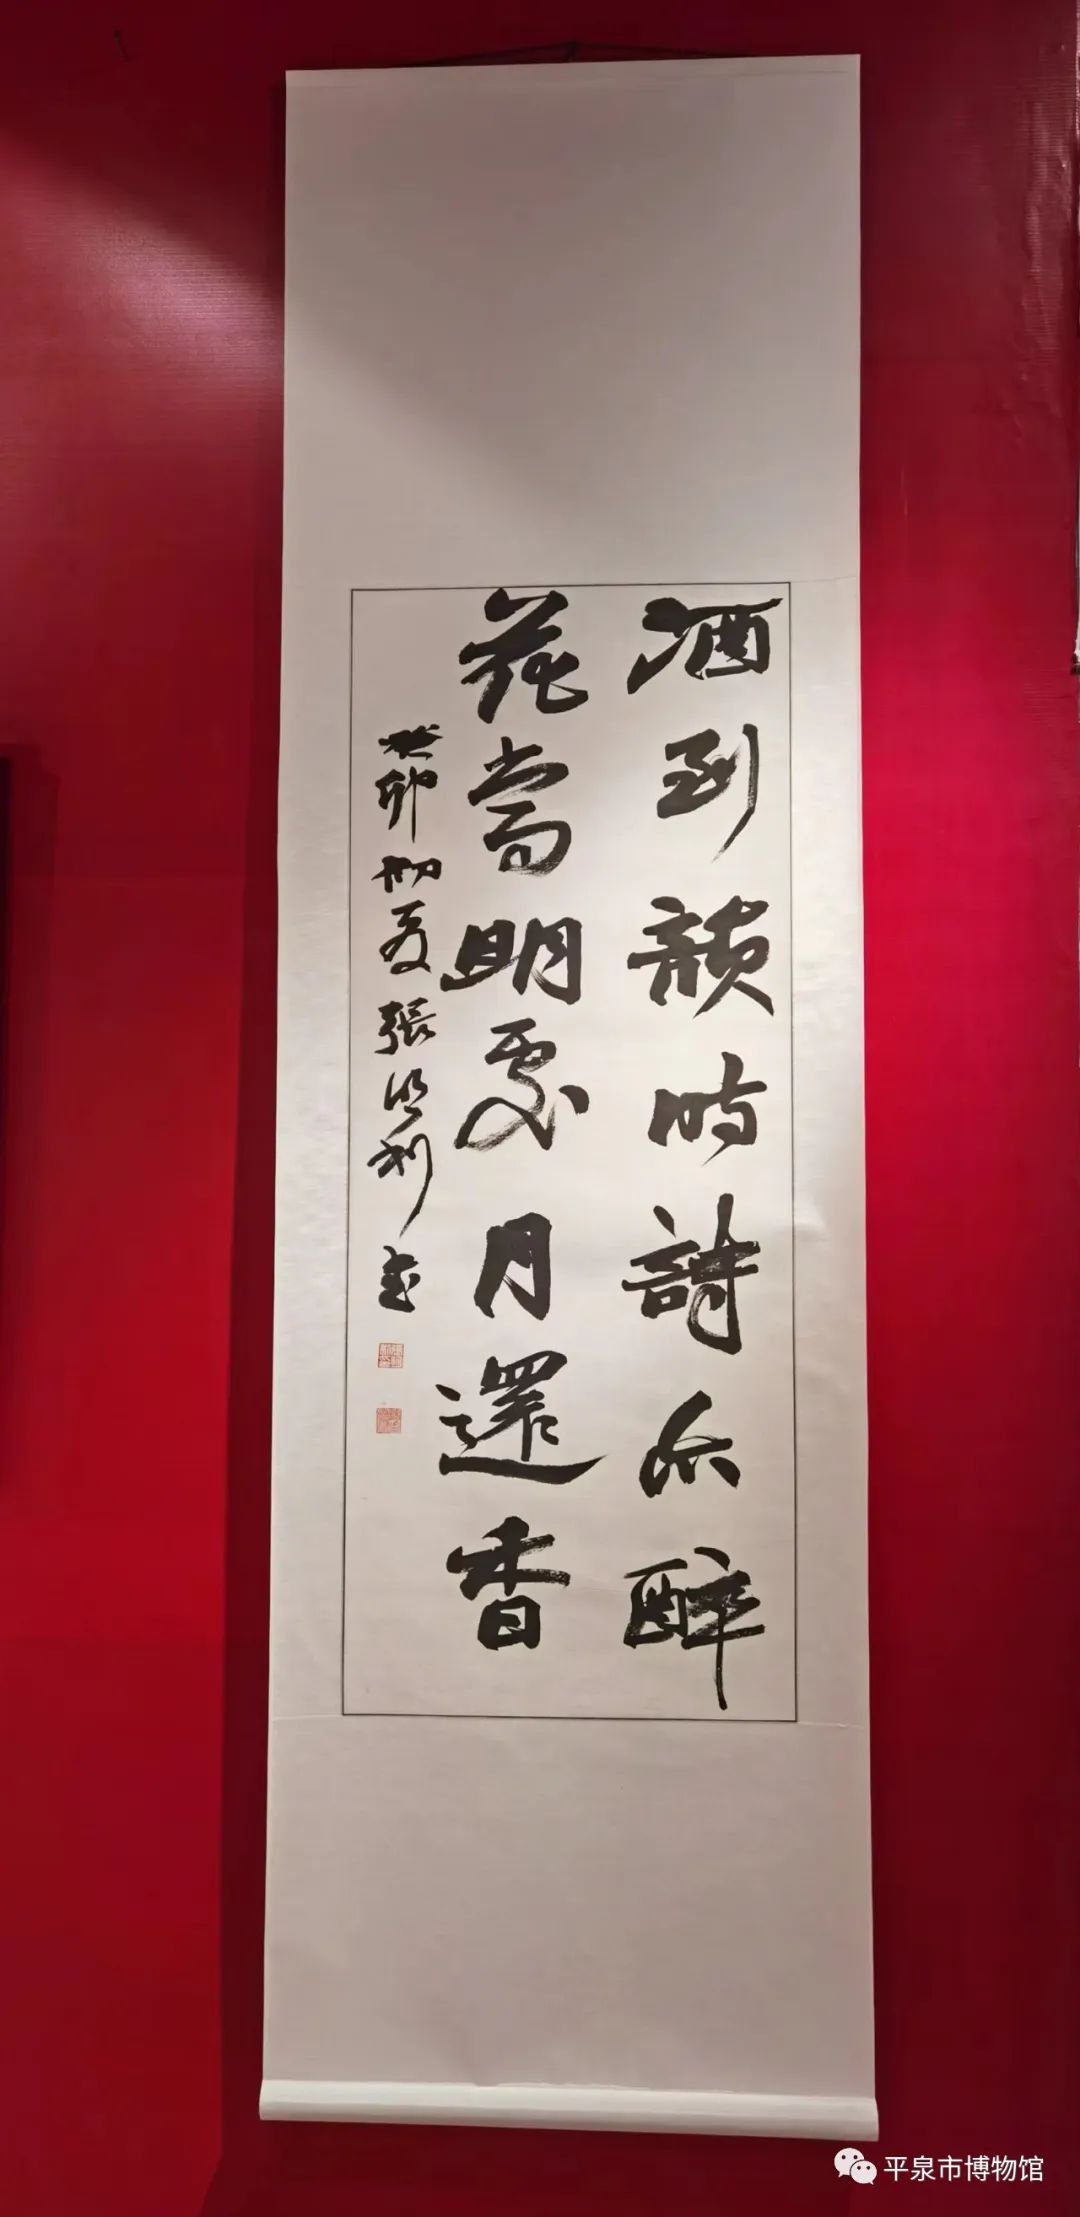 酒到韻时詩亦醉
花當明處月還香
癸卯初夏張明利書
平泉市博物馆